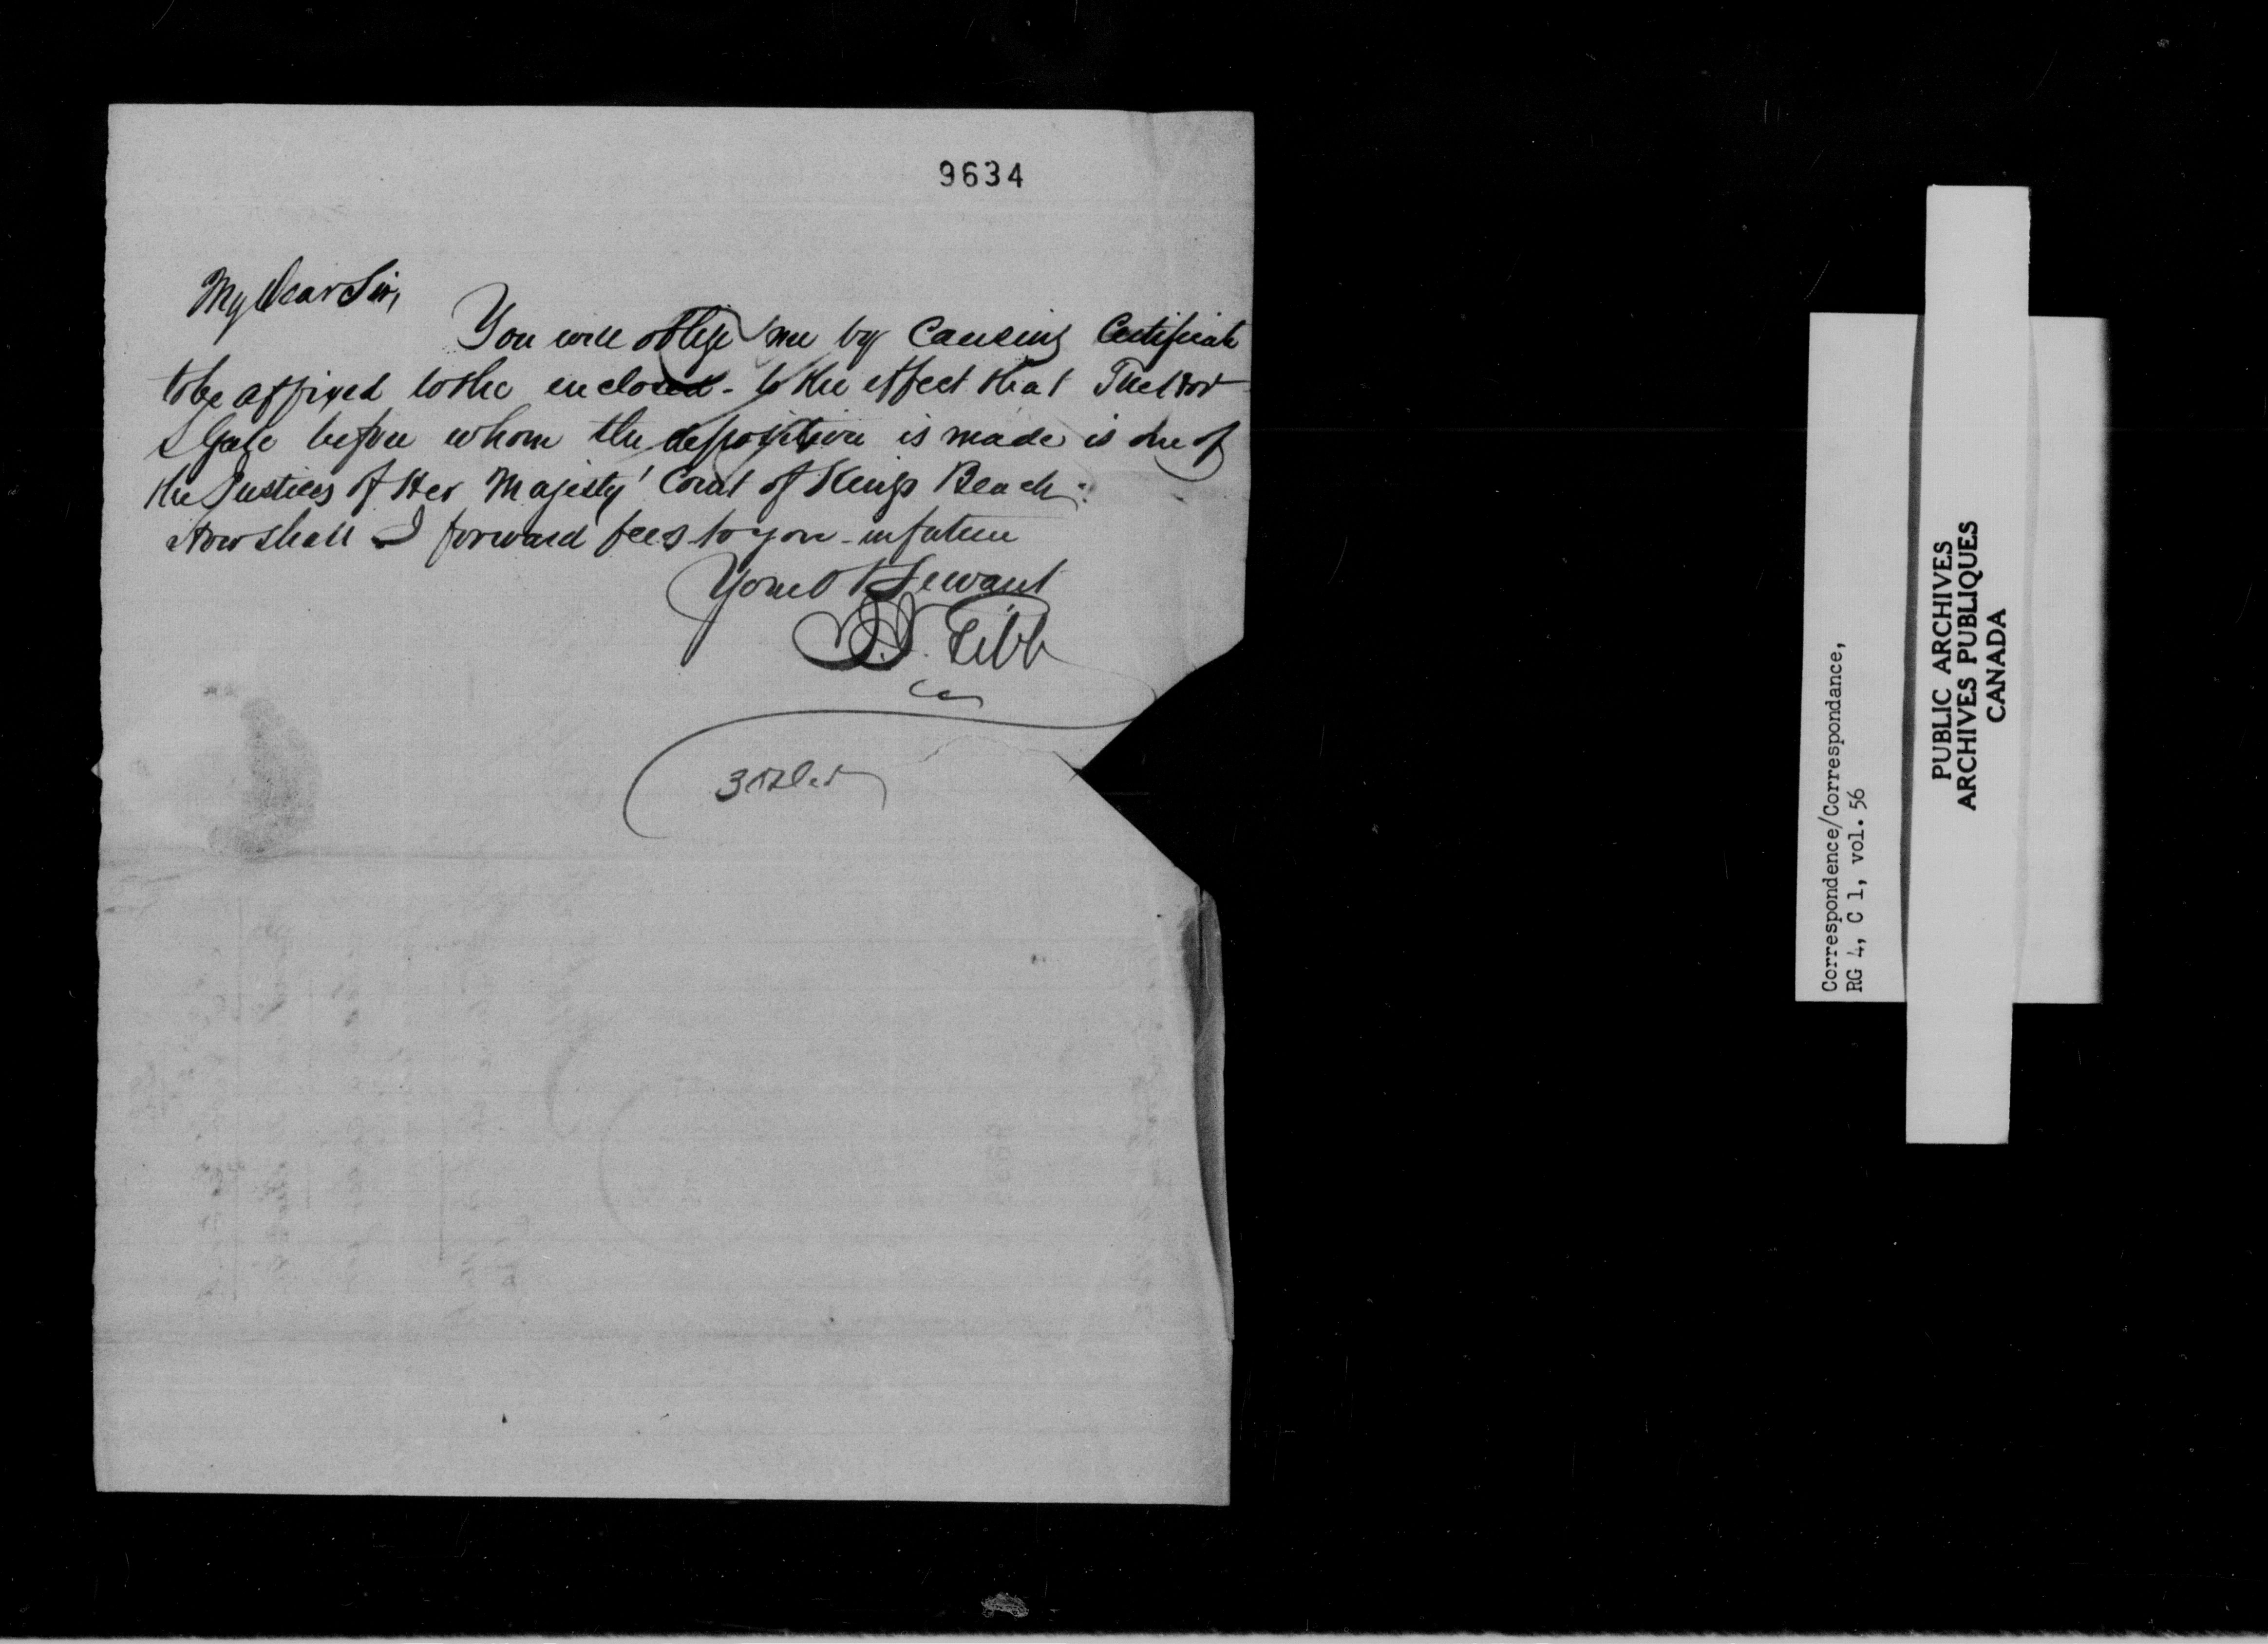 9634
My Dear Sir,
You will oblige me by Causing Certificate
to be affixed to the enclosed - to the effect that The Hon
S Gale before whom the deposition is made is one of
the Justices of Her Majesty' Court of Kings Bench.
How shall I forward fees to you in future
Your Ob Servant
Tibb
Correspondence/Correspondance,
RG 4, C 1, vol. 56
PUBLIC ARCHIVES
ARCHIVES PUBLIQUES
CANADA